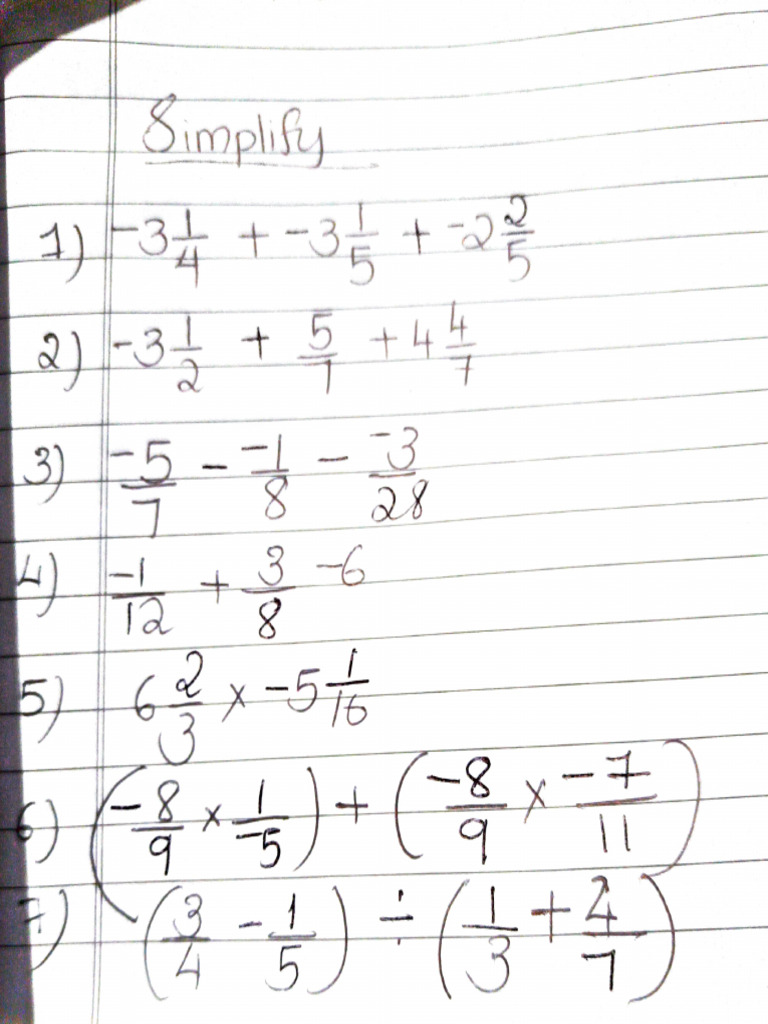 Simplify
1) -3 1/4 + -3 1/5 + -2 2/5
2) -3 1/2 + 5/7 + 4 4/7
3) -5/7 - -1/8 - -3/28
4) -1/12 + 3/8 -6
5) 6 2/3 × -5 1/16
6) (-8/9 × 1/-5) + (-8/9 × -7/11)
7) (3/4 - 1/5) ÷ (1/3 + 4/7)